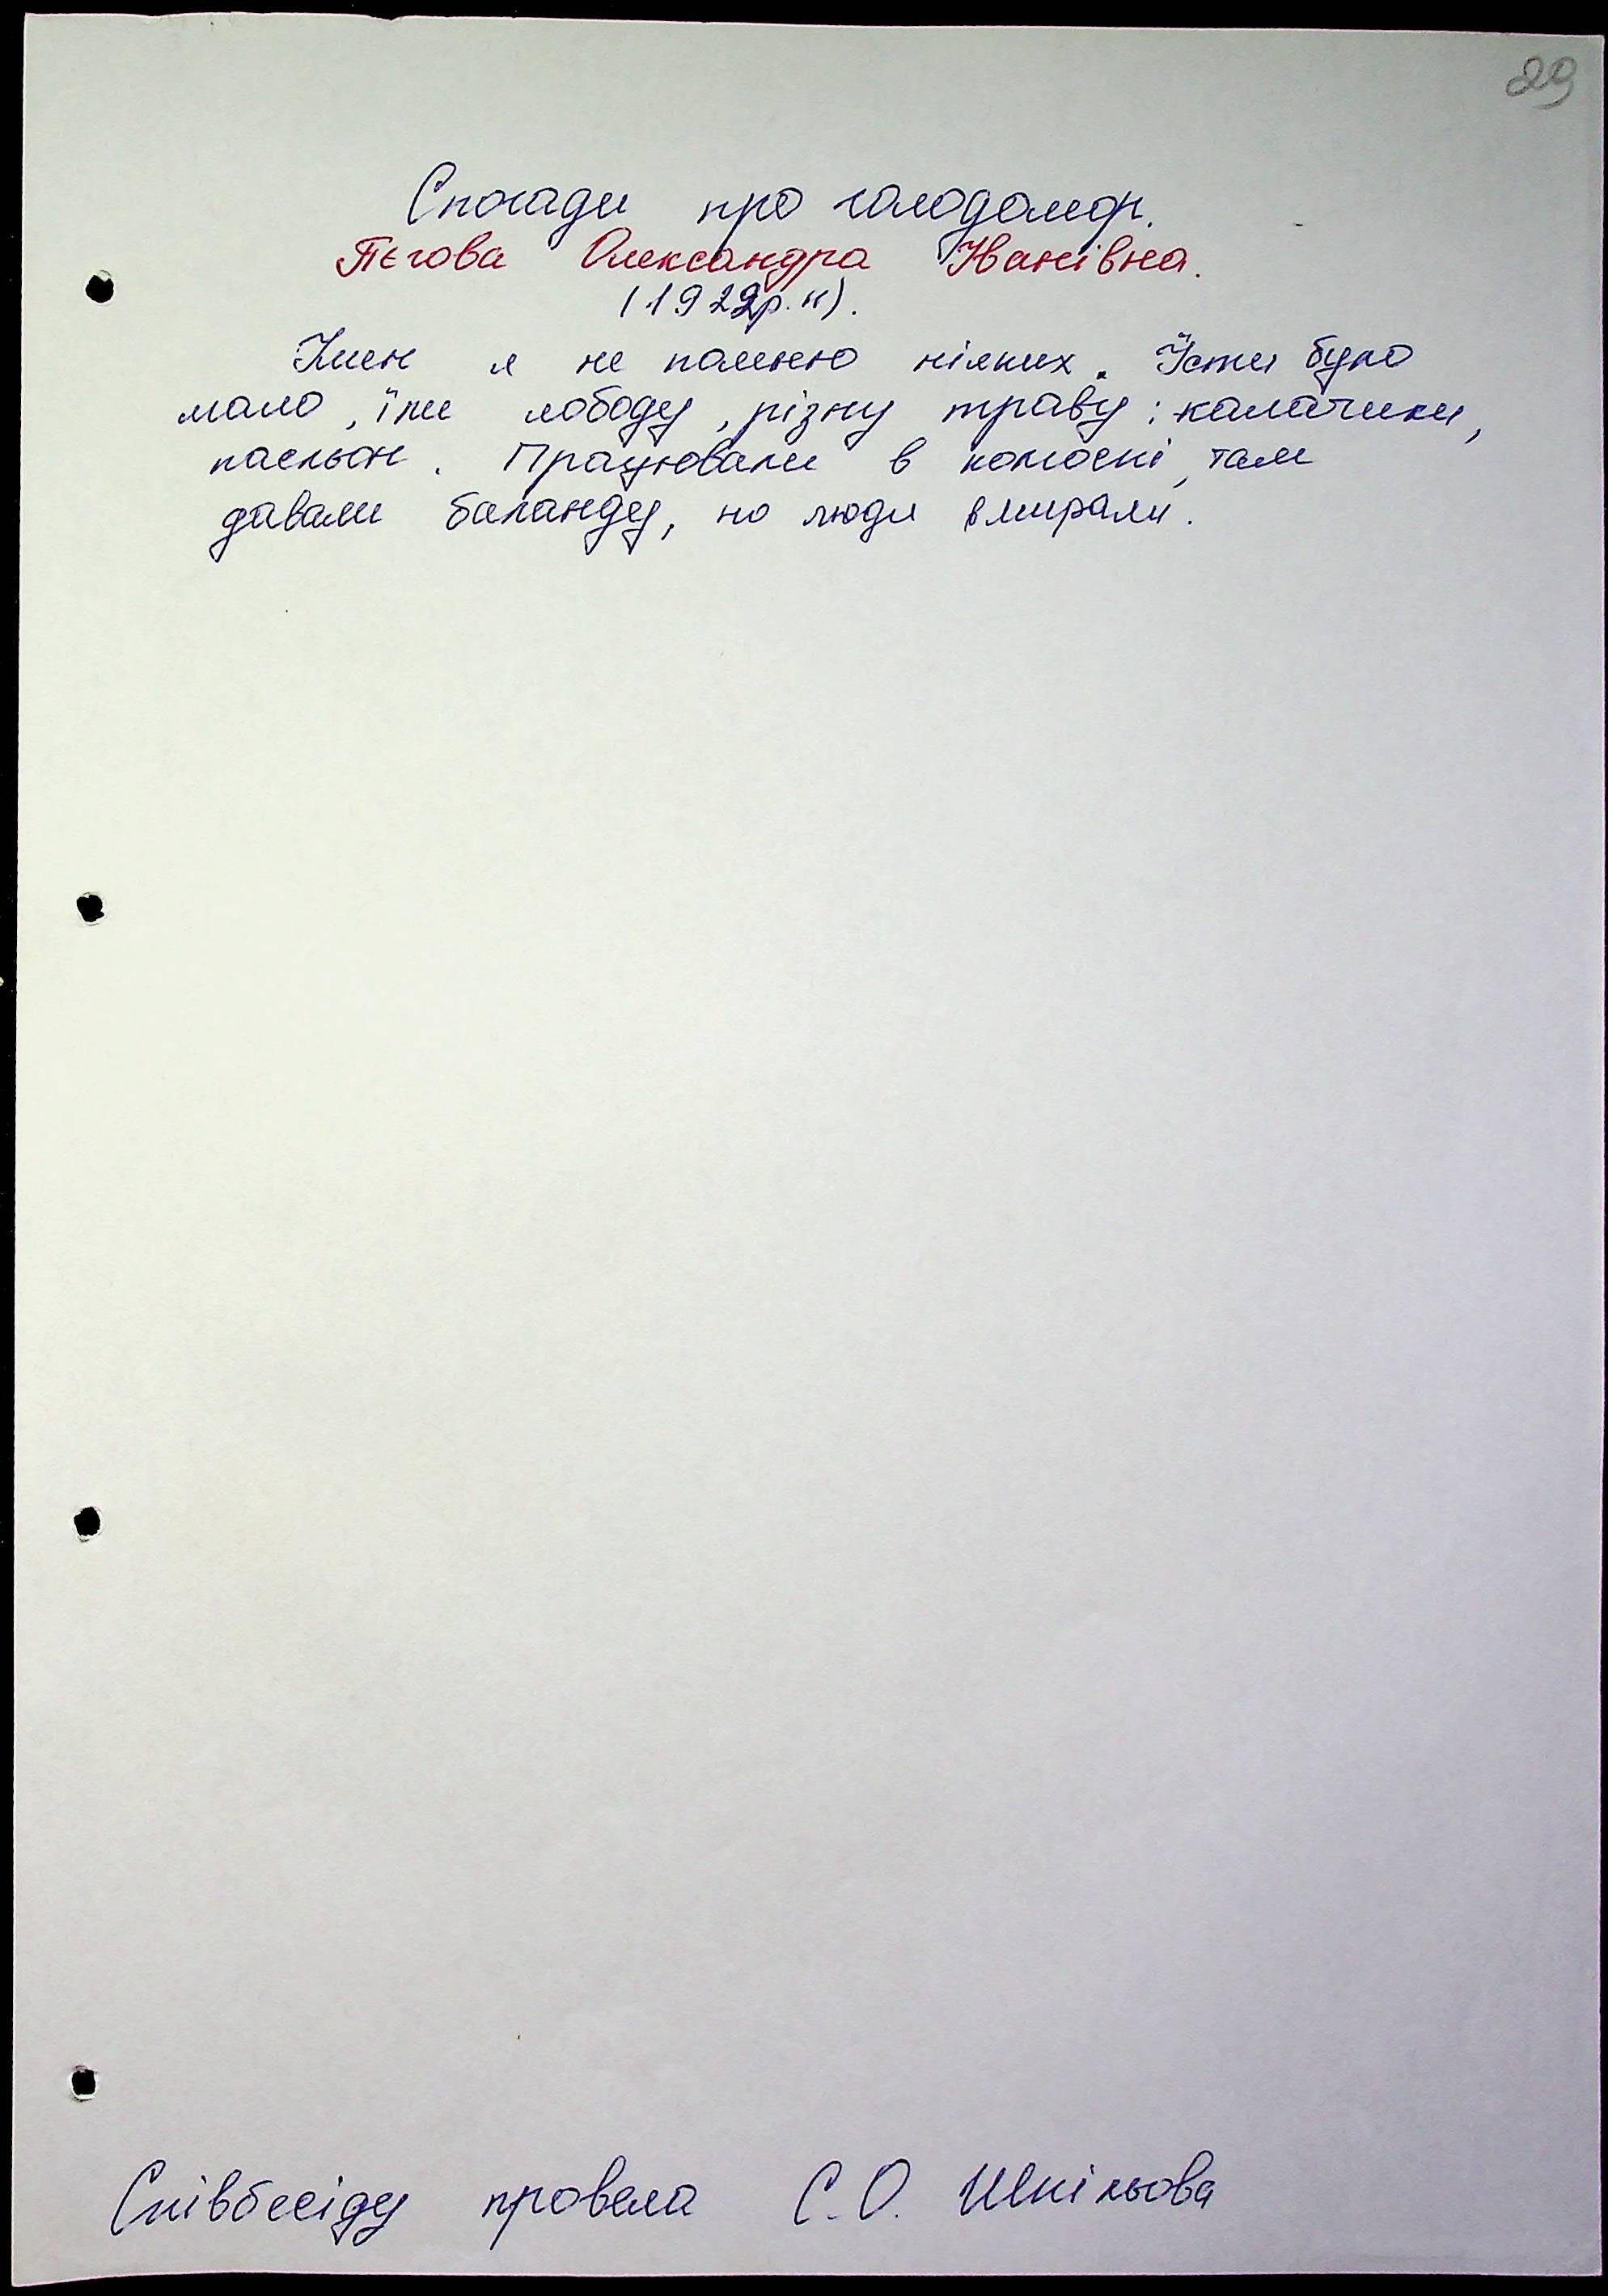 29
Спогади про голодомор.
Пєгова Олександра Іванівна.
(1922р.н).
Імен я не помню ніяких. Їсти було
мало, їли лободу, різну траву: калачики,
пасльон. Працювали в колгоспі, там
давали баланду, но люди вмирали.
Співбесіду провела С.О. Шпільова